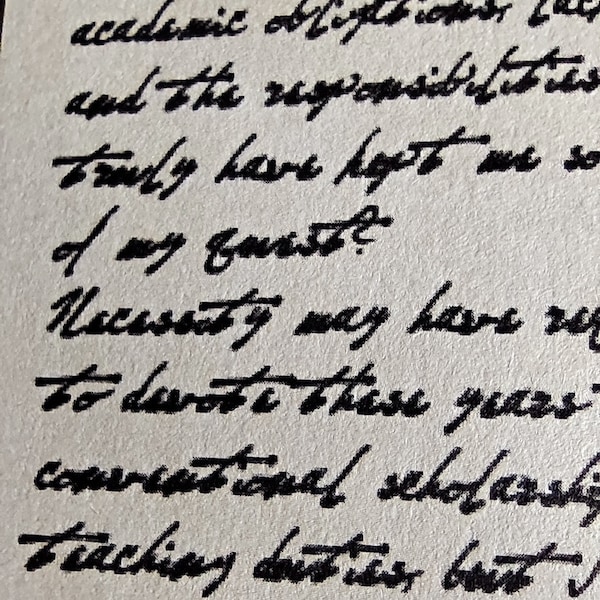 academic obligations,
and the responsibilities
truly have kept me so
of my quest?
Necessity may have
to devote these years
conventional scholarship
teaching duties, but I